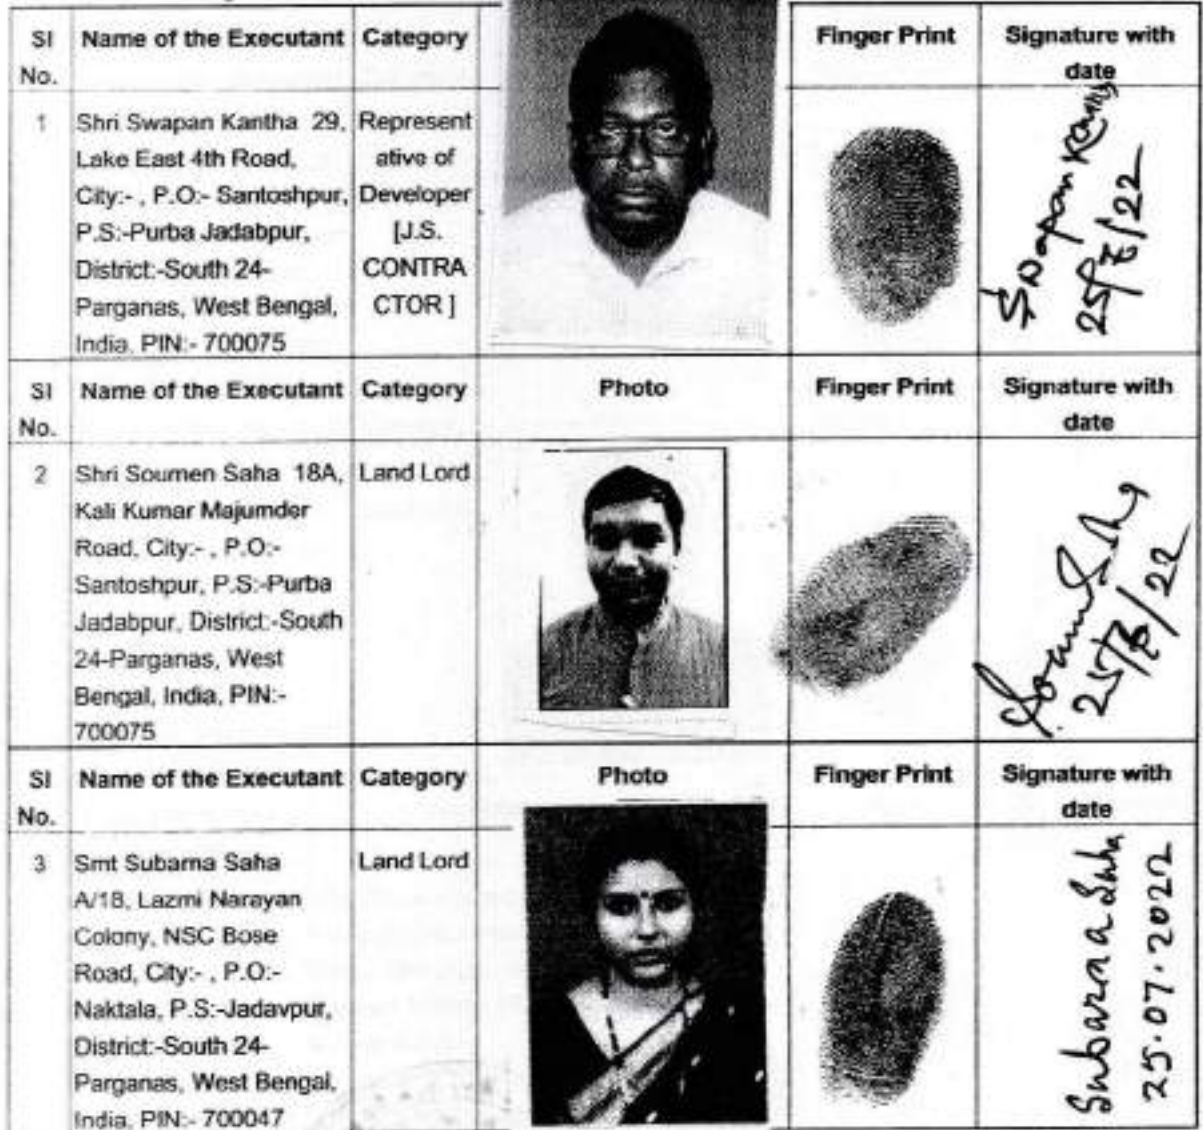 Sl No. Name of the Executant Category Finger Print Signature with date
1
Shri Swapan Kantha 29,
Lake East 4th Road,
City:- , P.O:- Santoshpur,
P.S:-Purba Jadabpur,
District:-South 24-
Parganas, West Bengal,
India, PIN:- 700075
Represent
ative of
Developer
[J.S.
CONTRA
CTOR ]
Swapan Kantha
25/7/22
Sl No. Name of the Executant Category Photo Finger Print Signature with date
2
Shri Soumen Saha 18A,
Kali Kumar Majumder
Road, City:- , P.O:-
Santoshpur, P.S:-Purba
Jadabpur, District:-South
24-Parganas, West
Bengal, India, PIN:-
700075
Land Lord
25/7/22
Sl No. Name of the Executant Category Photo Finger Print Signature with date
3
Smt Subarna Saha
A/18, Lazmi Narayan
Colony, NSC Bose
Road, City:- , P.O:-
Naktala, P.S:-Jadavpur,
District:-South 24-
Parganas, West Bengal,
India, PIN:- 700047
Land Lord
Subarna Saha
25.07.2022